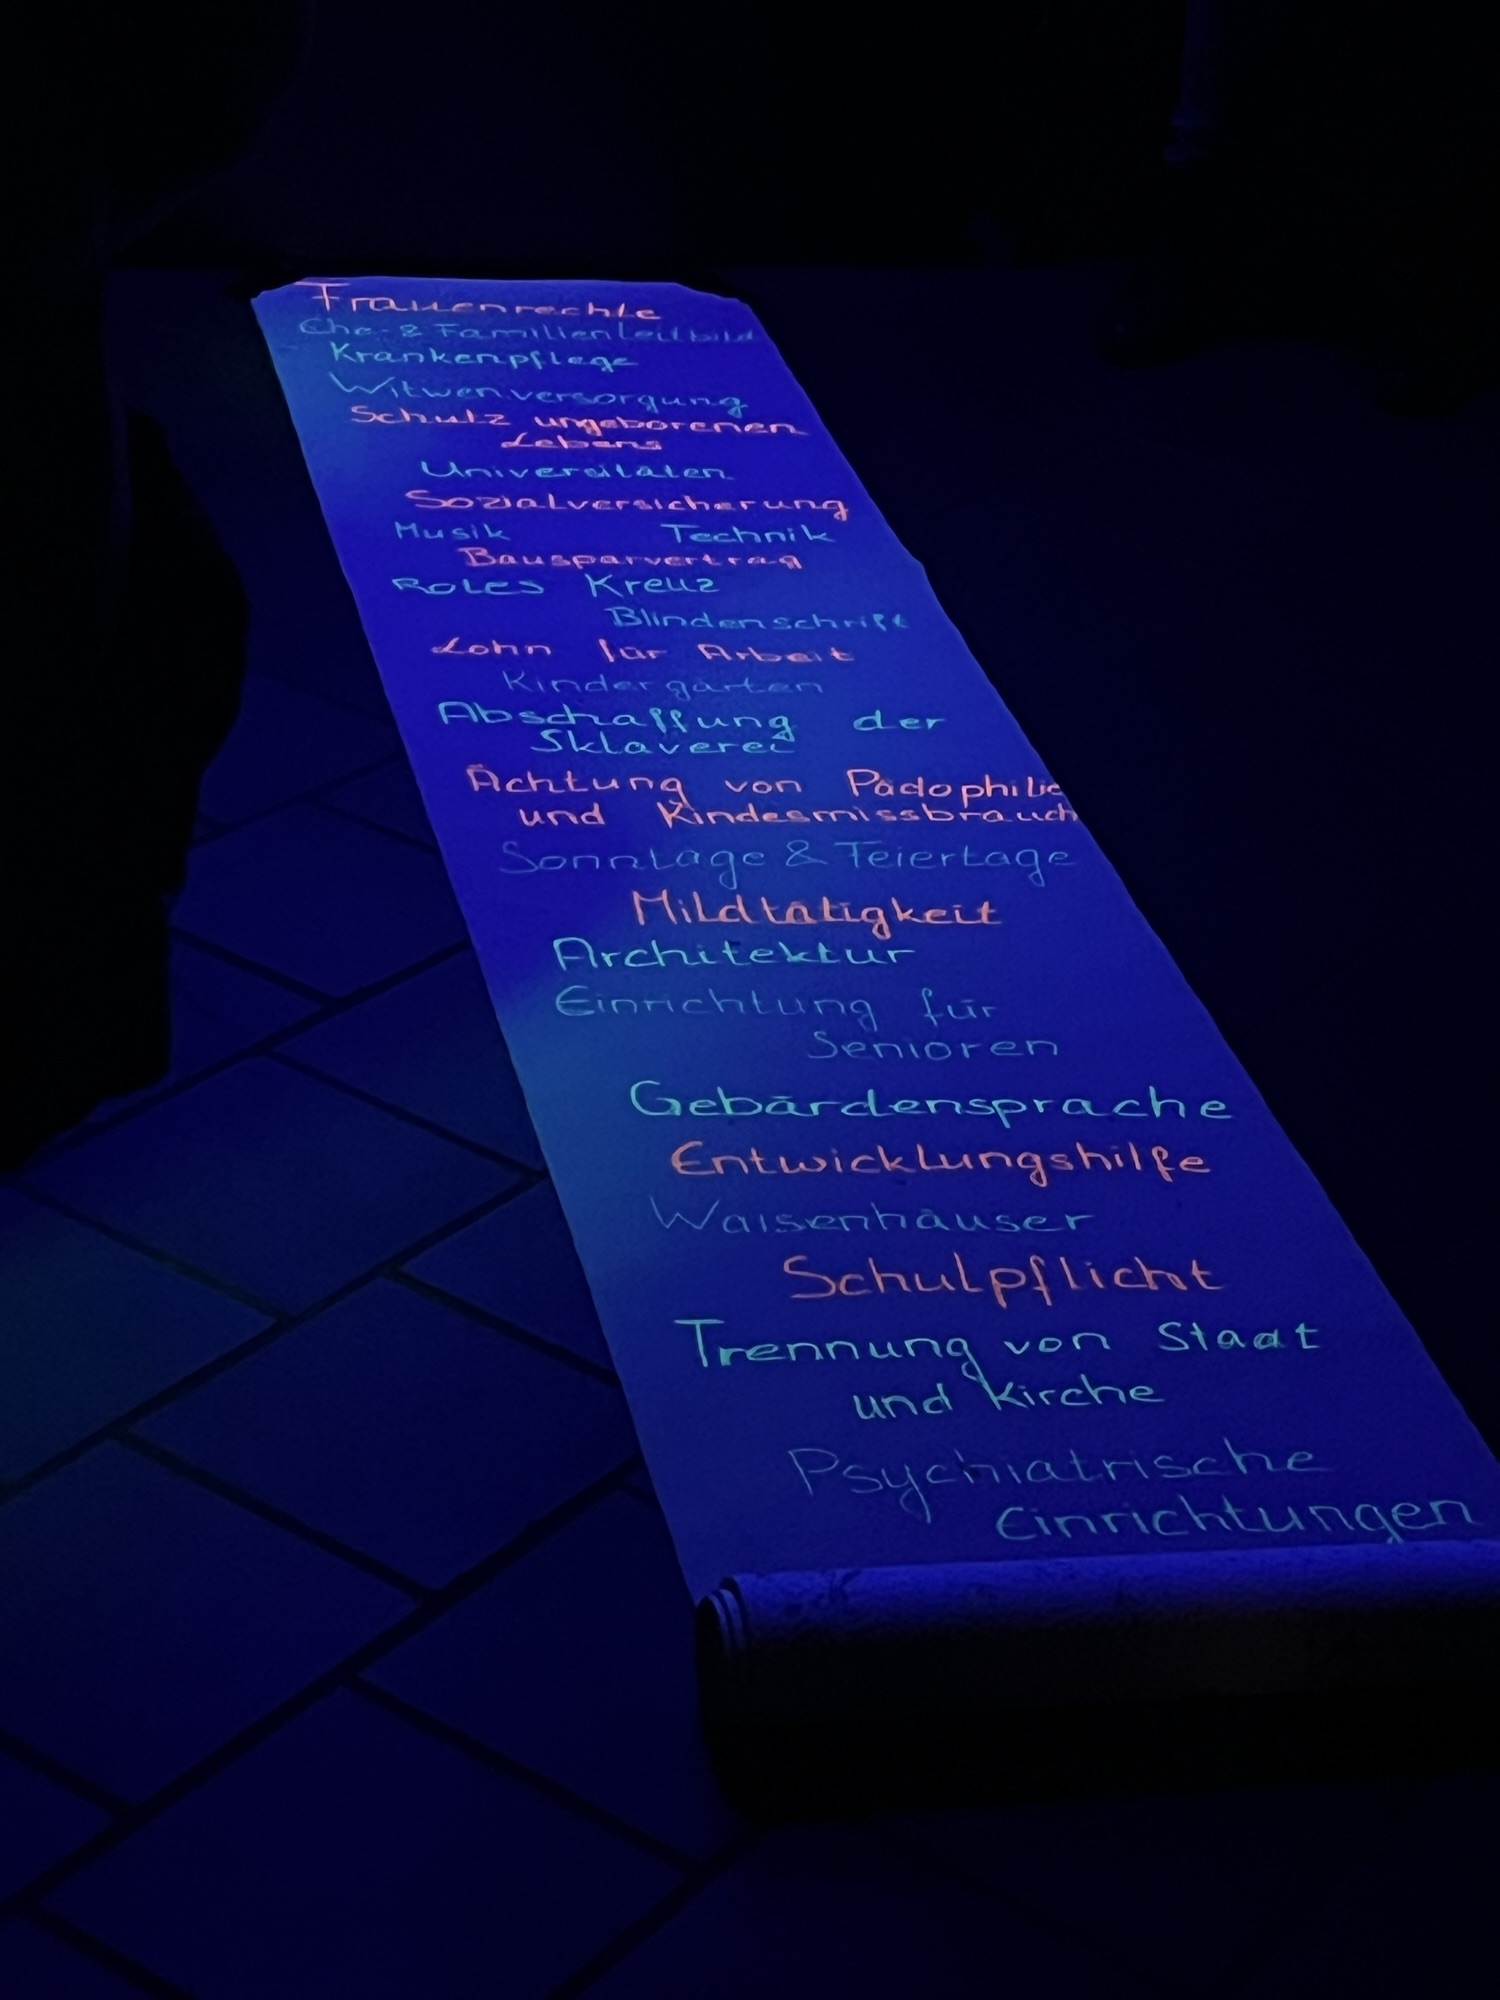 Frauenrechte
Ehe- & Familienleitbild
Krankenpflege
Witwenversorgung
Schutz ungeborenen
Lebens
Universitäten
Sozialversicherung
Musik Technik
Bausparvertrag
Rotes Kreuz
Blindenschrift
Lohn für Arbeit
Kindergärten
Abschaffung der
Sklaverei
Ächtung von Pädophilie
und Kindesmissbrauch
Sonntage & Feiertage
Mildtätigkeit
Architektur
Einrichtung für
Senioren
Gebärdensprache
Entwicklungshilfe
Waisenhäuser
Schulpflicht
Trennung von Staat
und Kirche
Psychiatrische
Einrichtungen